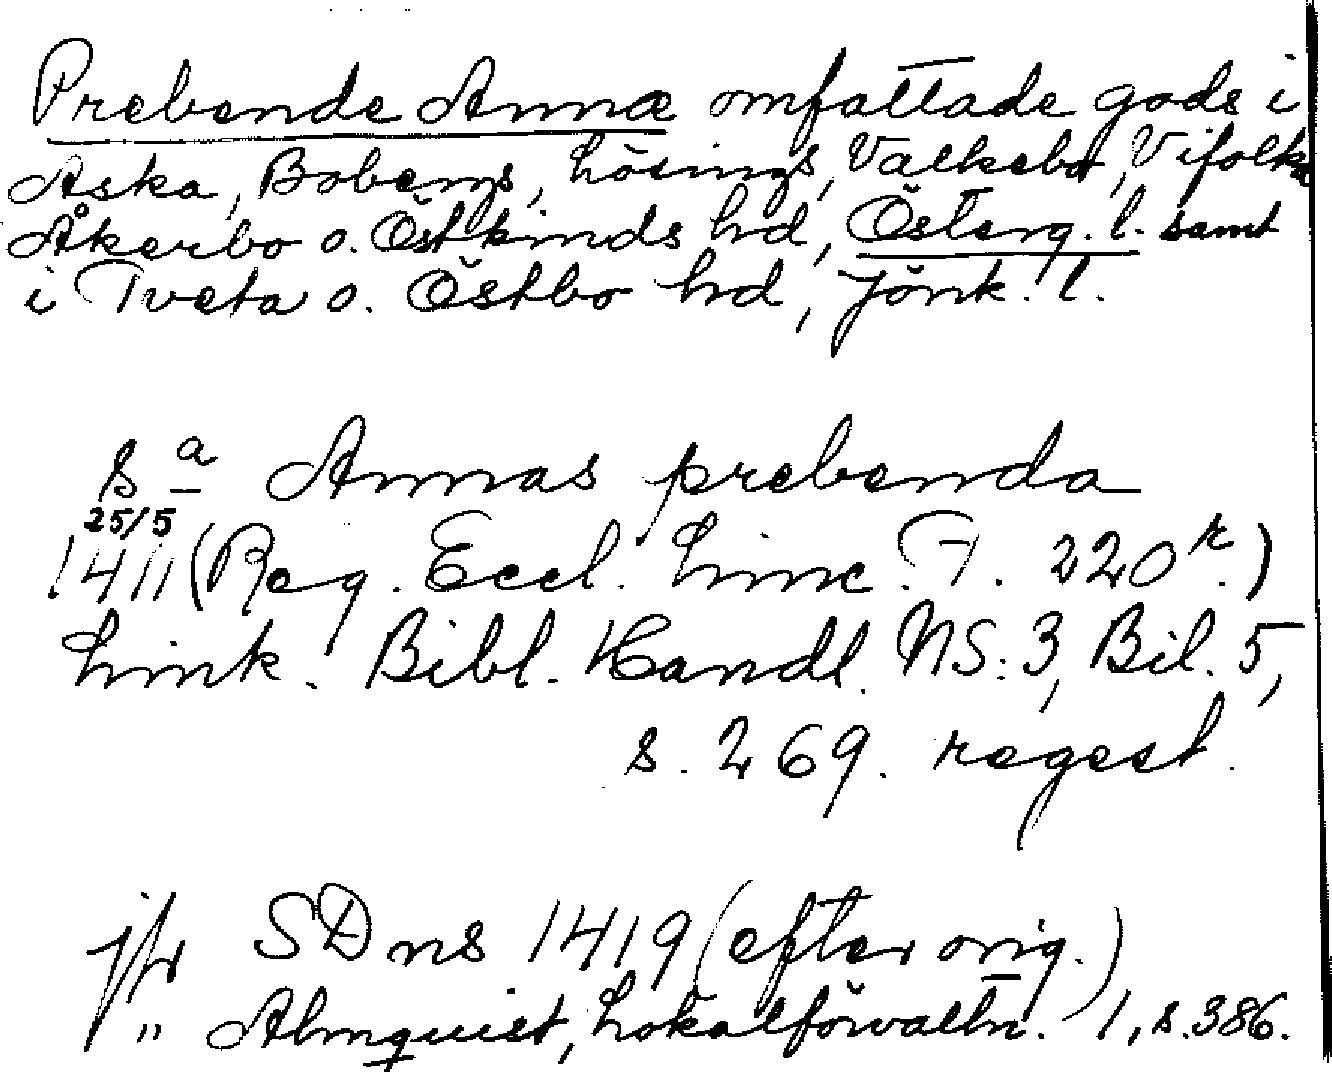 Prebende Annæ omfattade gods i
Aska, Bobergs, Lösings, Valkebo, Vifolka
Åkerbo o. Östkinds hrd, Österg. l. samt
i Tveta o. Östbo hrd, Jönk. l.
Sa Annas prebenda
25/5
1411 (Reg. Eccl. Linc. F. 220r.)
Link. Bibl. Handl. NS: 3, Bil. 5,
s. 269. regest.
jfr SD ns 1419 (efter orig.)
" Almquist, Lokalförvaltn. 1, s. 386.